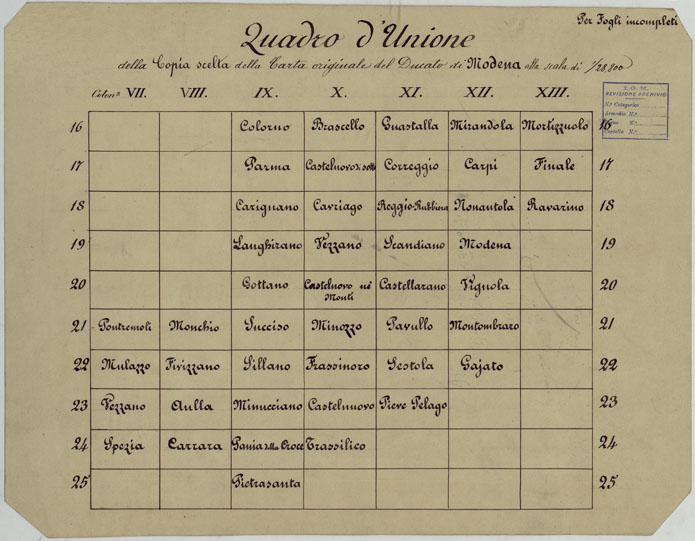 Per Fogli incompleti
Quadro d'Unione
della Copia scelta della Carta originale del Ducato di Modena alla scala di 1/28,800
Colonª VII. VIII. IX. X. XI. XII. XIII.
I. G. M.
REVISIONE ARCHIVIO
Nº Categorico
Armadio Nº
Nº
Cartella Nº
16 Colorno Brascello Guastalla Mirandola Mortizzuolo 16
17 Parma Castelnuovo di sotto Correggio Carpi Finale 17
18 Carignano Cavriago Reggio-Rubbiera Nonantola Ravarino 18
19 Langhirano Vezzano Scandiano Modena 19
20 Gottano Castelnuovo ne' Monti Castellarano Vignola 20
21 Pontremoli Monchio Succiso Minozzo Pavullo Montombraro 21
22 Mulazzo Fivizzano Sillano Frassinoro Sestola Gajato 22
23 Vezzano Aulla Minucciano Castelnuovo Pieve Pelago 23
24 Spezia Carrara Pania della Croce Trassilico 24
25 Pietrasanta 25